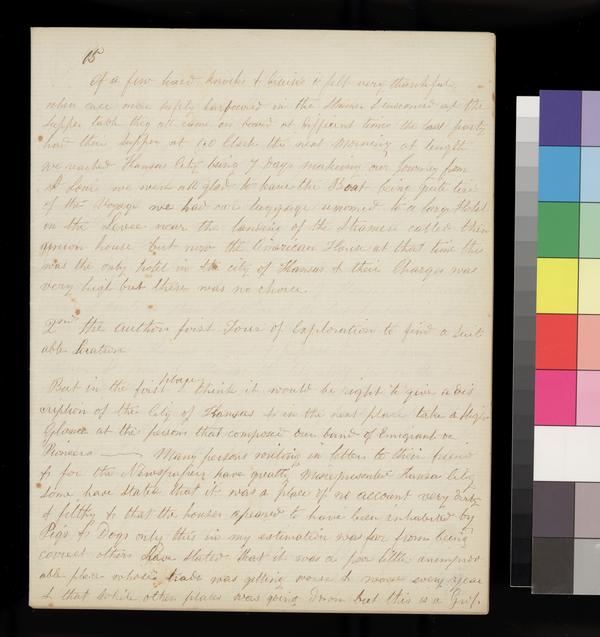 18
of a few hard knocks & bruises & felt very thankful
when once more safely harboured in the Steamer & ensconced at the
supper table they all came on board at different times the last party
had their supper at 10 Clock the next Morning at length
we reached Kansas City being 7 days makeing our Journey from
St Louis we were all glad to leave the Boat being quite tired
of the Voyage we had our luggage removed to a large Hotel
on the Levee near the landing of the Steamers called then
house but now the American House at that time this
was the only hotel in the city of Kansas & their Charges was
very high but there was no choice
2nd the authors first Tour of Exploration to find a suit
able Location
But in the first place I think it would be right to give a dis
cription of the City of Kansas & in the next place take a slight
Glance at the persons that composed our band of Emigrant or
Pioneers — Many persons writing in letters to their friend
& for the Newspapers have greatly Misrepresented Kansas City
some have stated that it was a place of no account very dirty
& filthy & that the houses apeared to have been inhabited by
Pigs & Dogs only this in my estimation was far from being
correct others have stated that it was a poor little unimprov
able place whose trade was getting worse & worse every year
& that while other places was going down but this is a